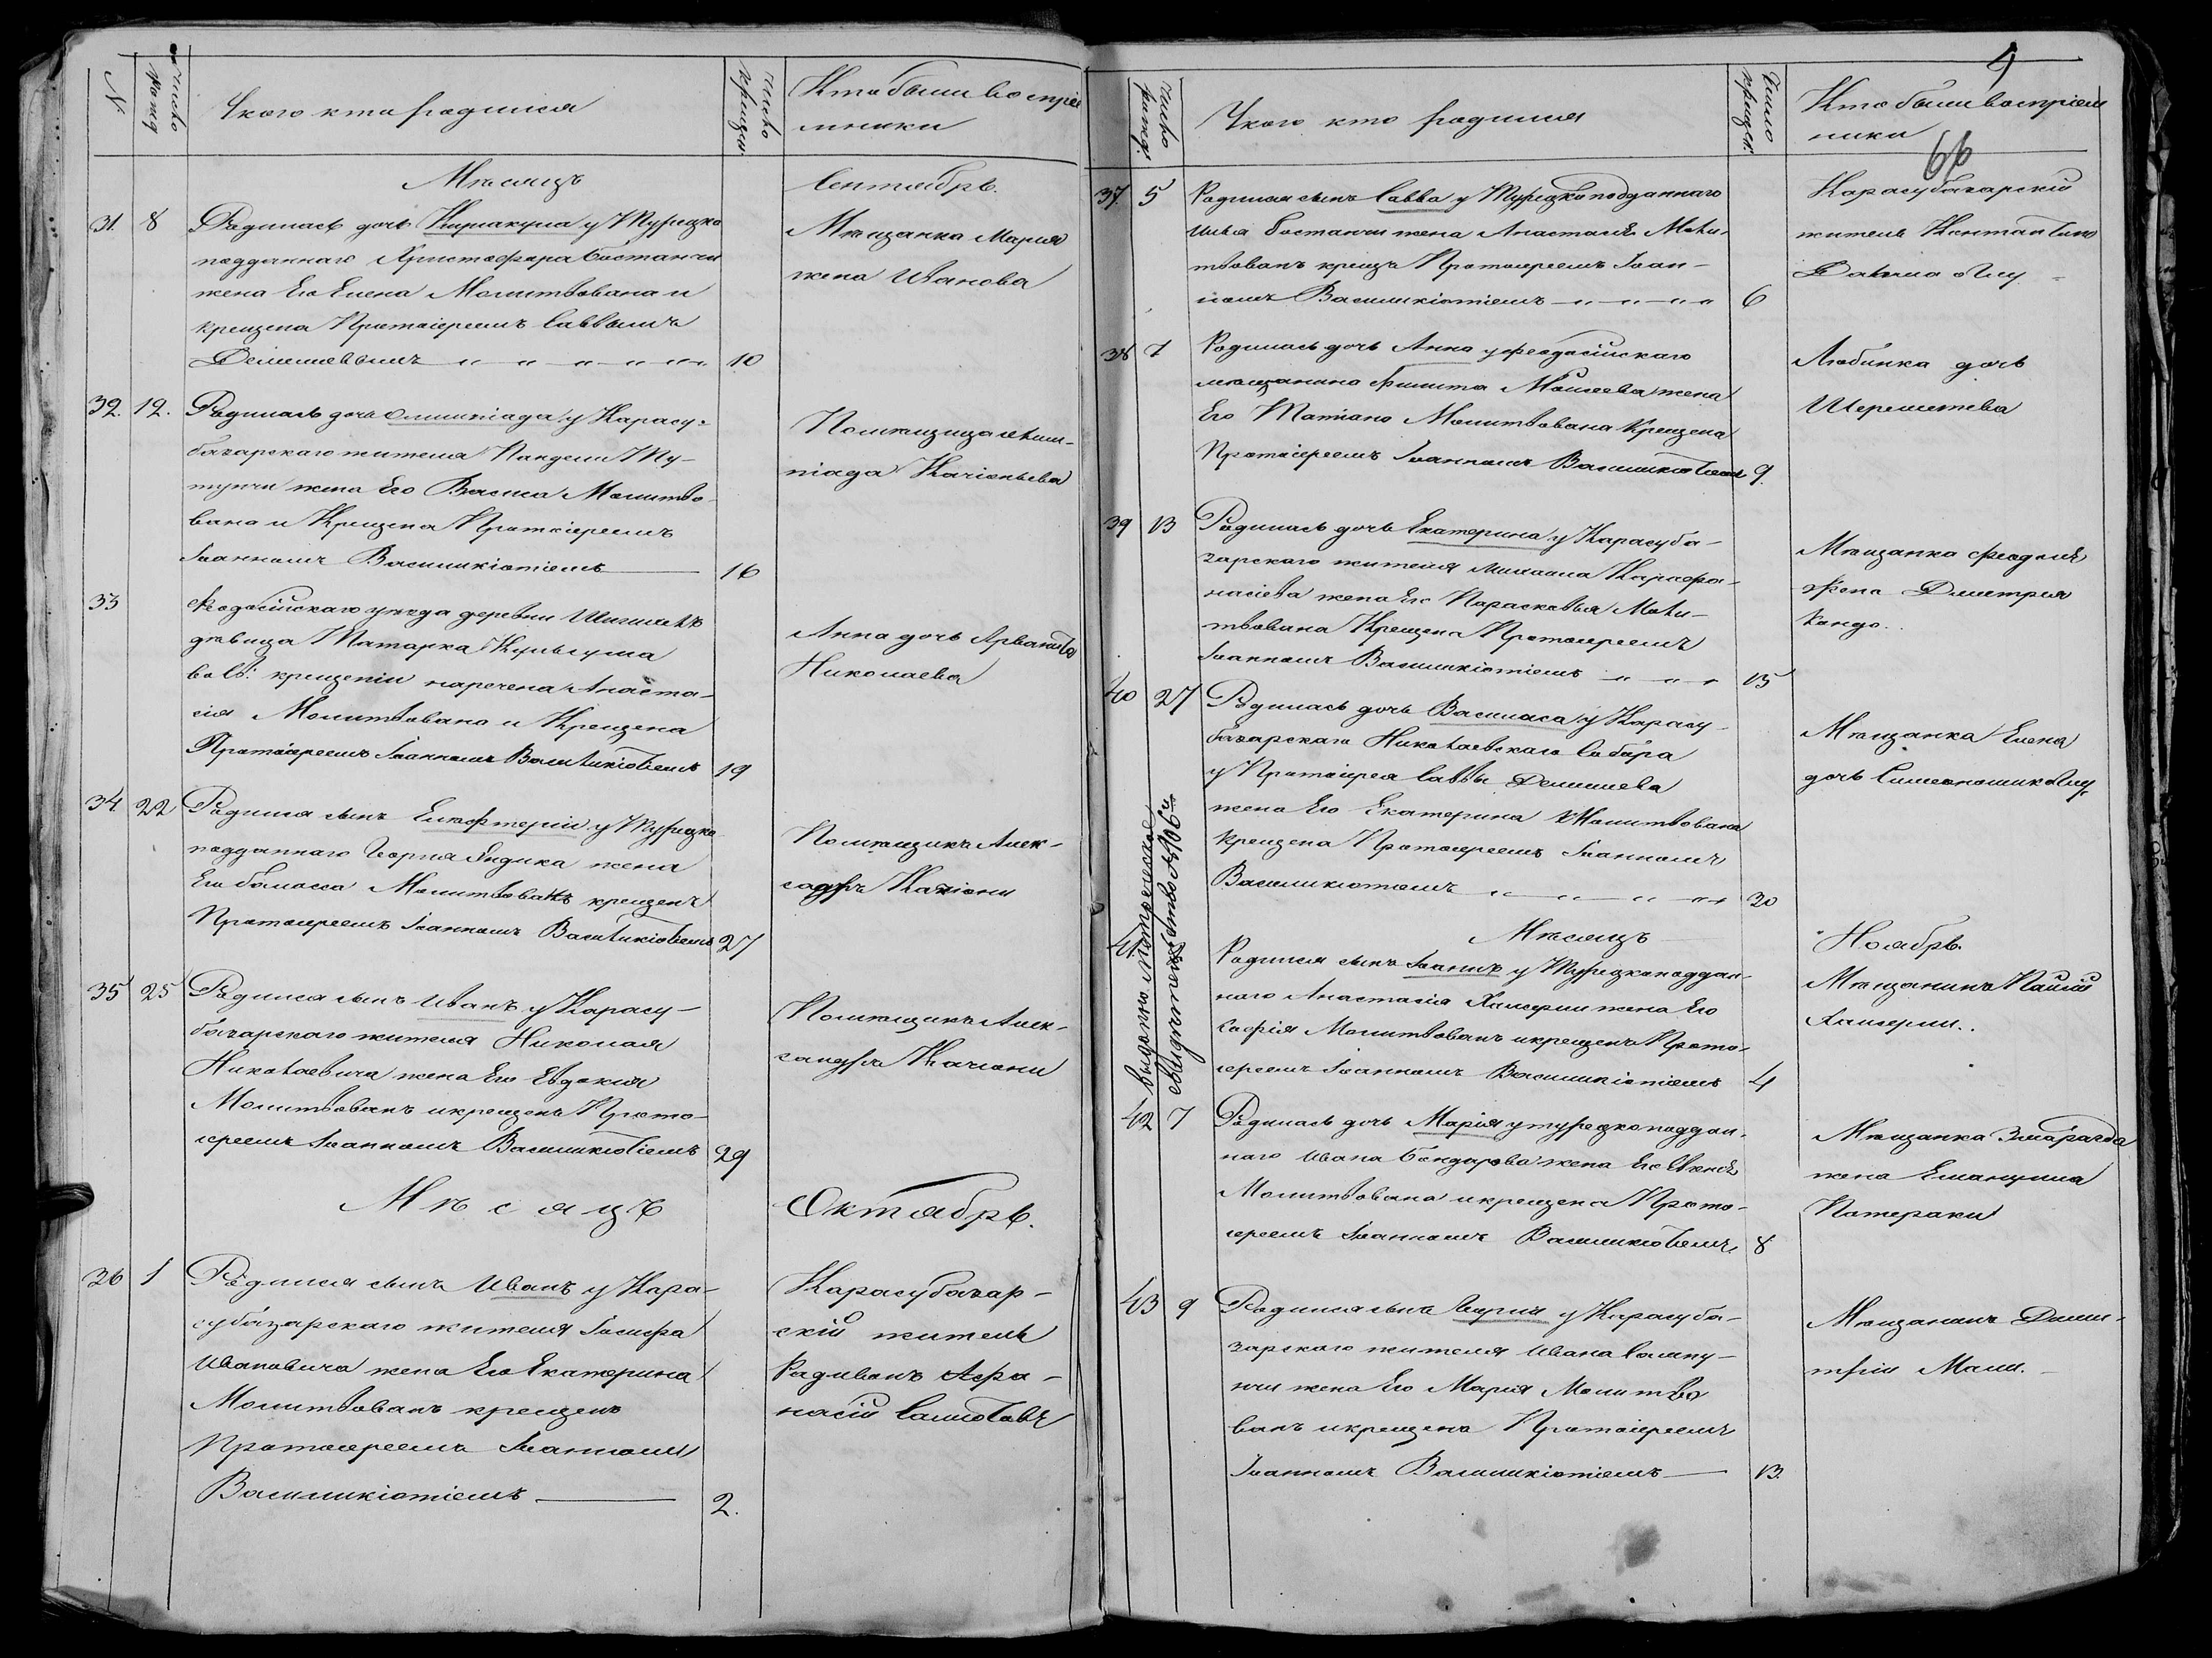 N
Число рожд
У кого кто родился
Число крещен.
Кто были воспріе
мники
Мѣсяцъ Сентябрь.
31. 8 Родилась дочь Киріакула у Турецко
подданнаго Христофора Бостанчи
жена Его Елена Молитвована и
крещена Протоіереемъ Саввымъ
Демишевымъ 10
Мѣщанка Марія
жена Иванова
32. 12. Родилась дочь Олимпіада у Карасу-
базарскаго жителя Пандели Ту-
тунчи жена Его Васила Молитво
вана и Крещена Протоіереемъ
Іоанномъ Василикіотіемъ 16
Помѣщица Олим-
піада Качіоньева
33 Феодосійскаго уѣзда деревни
дѣвица Татарка Кульсума
во Св: крещеніи наречена Анаста-
сія Молитвована и Крещена
Протоіереемъ Іоанномъ Василикіотіемъ 19
Анна дочь
Николаева
34 22 Родился сынъ Елевферій у Турецко
подданнаго Георгія Яндика жена
Его Молитвованъ крещенъ
Протоіереемъ Іоанномъ Василикіотіемъ 27
Помѣщикъ Алек-
садръ Качіони
35 25 Родился сынъ Иванъ у Карасу-
базарскаго жителя Николая
Николаевича жена Его Евдокія
Молитвованъ и крещенъ Прото-
іереемъ Іоанномъ Василикіотіемъ 29
Помѣщикъ Алек-
сандръ Качіони
Мѣсяцъ Октябрь.
36 1 Родился сынъ Иванъ у Кара-
субазарскаго жителя Іосифа
Ивановича жена Его Екатерина
Молитвованъ крещенъ
Протоіереемъ Іоанномъ
Василикіотіемъ 2.
Карасубазар-
скій житель
Радивонъ Афа-
насій
9
66
Число рожд.
У кого кто родился
Число крещен.
Кто были воспріем
ники
37 5 Родился сынъ Савва у Турецкоподданнаго
Илья Бостанчи жена Анастасія Моли-
твованъ крещъ Протоіереемъ Іоан-
номъ Василикіотіемъ 6
Карасубазарскій
житель Константинъ
38 7 Родилась дочь Анна у феодосійскаго
мѣщанина Филипа Моисеева жена
Его Татіана Молитвована Крещена
Протоіереемъ Іоанномъ Василикіотіемъ 9.
Любинка дочь
Шереметева
39 13 Родилась дочь Екатерина у Карасуба-
зарскаго жителя Михаила Карафа-
насіева жена Его Парасковья Моли-
твована Крещена Протоіереемъ
Іоанномъ Василикіотіемъ 15
Мѣщанка Феодосія
жена Дмитрія
Кандо.
40 27 Родилась дочь Василиса у Карасу-
базарскаго Николаевскаго Собора
у Протоіерея Саввы Демишева
жена Его Екатерина Молитвована
крещена Протоіереемъ Іоанномъ
Василикіотіемъ 30
Мѣщанка Елена
дочь
Мѣсяцъ Ноябрь.
выдано Метрическое
свидѣтельство
41. Родился сынъ Іоанъ у Турецкоподдан-
наго Анастасія Халефли жена Его
Софія Молитвованъ и крещенъ Прото-
іереемъ Іоанномъ Василикіотіемъ 4
Мѣщанинъ Паисій
42 7 Родилась дочь Марія у турецкоподдан-
наго Ивана Бондарева жена Его
Молитвована и крещена Прото-
іереемъ Іоанномъ Василикіотіемъ 8
Мѣщанка Змарагда
жена Емануила
Патераки
43 9 Родился сынъ Георгій у Карасуба-
зарскаго жителя Ивана
жена Его Марія Молитво
ванъ и крещенъ Протоіереемъ
Іоанномъ Василикіотіемъ 13.
Мѣщанинъ Дими-
трій Мали.